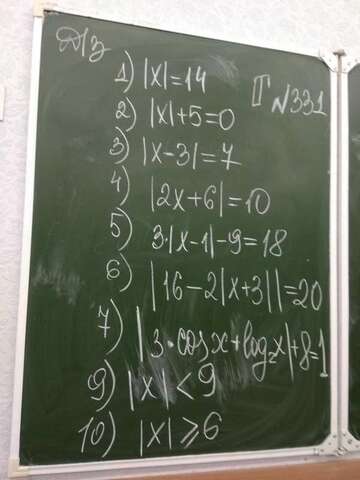 Д/з
1) |x|=14
Г №331
2) |x|+5=0
3) |x-3|=7
4) |2x+6|=10
5) 3·|x-1|-9=18
6) |16-2|x+3||=20
7) |3·cosx+log₂x|+8=1
9) |x|<9
10) |x|⩾6